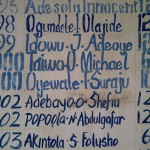 95 Adesola Innocent
98 Ogundele-I-Olajide
99 Idowu-J-Adeoye
00 Taiwo-O-Michael
00 Oyewale-T-Suraju
002 Adebayo-O-Shefiu
002 POPOOLA-N-Abdulgafar
03 Akintola-S-Folusho